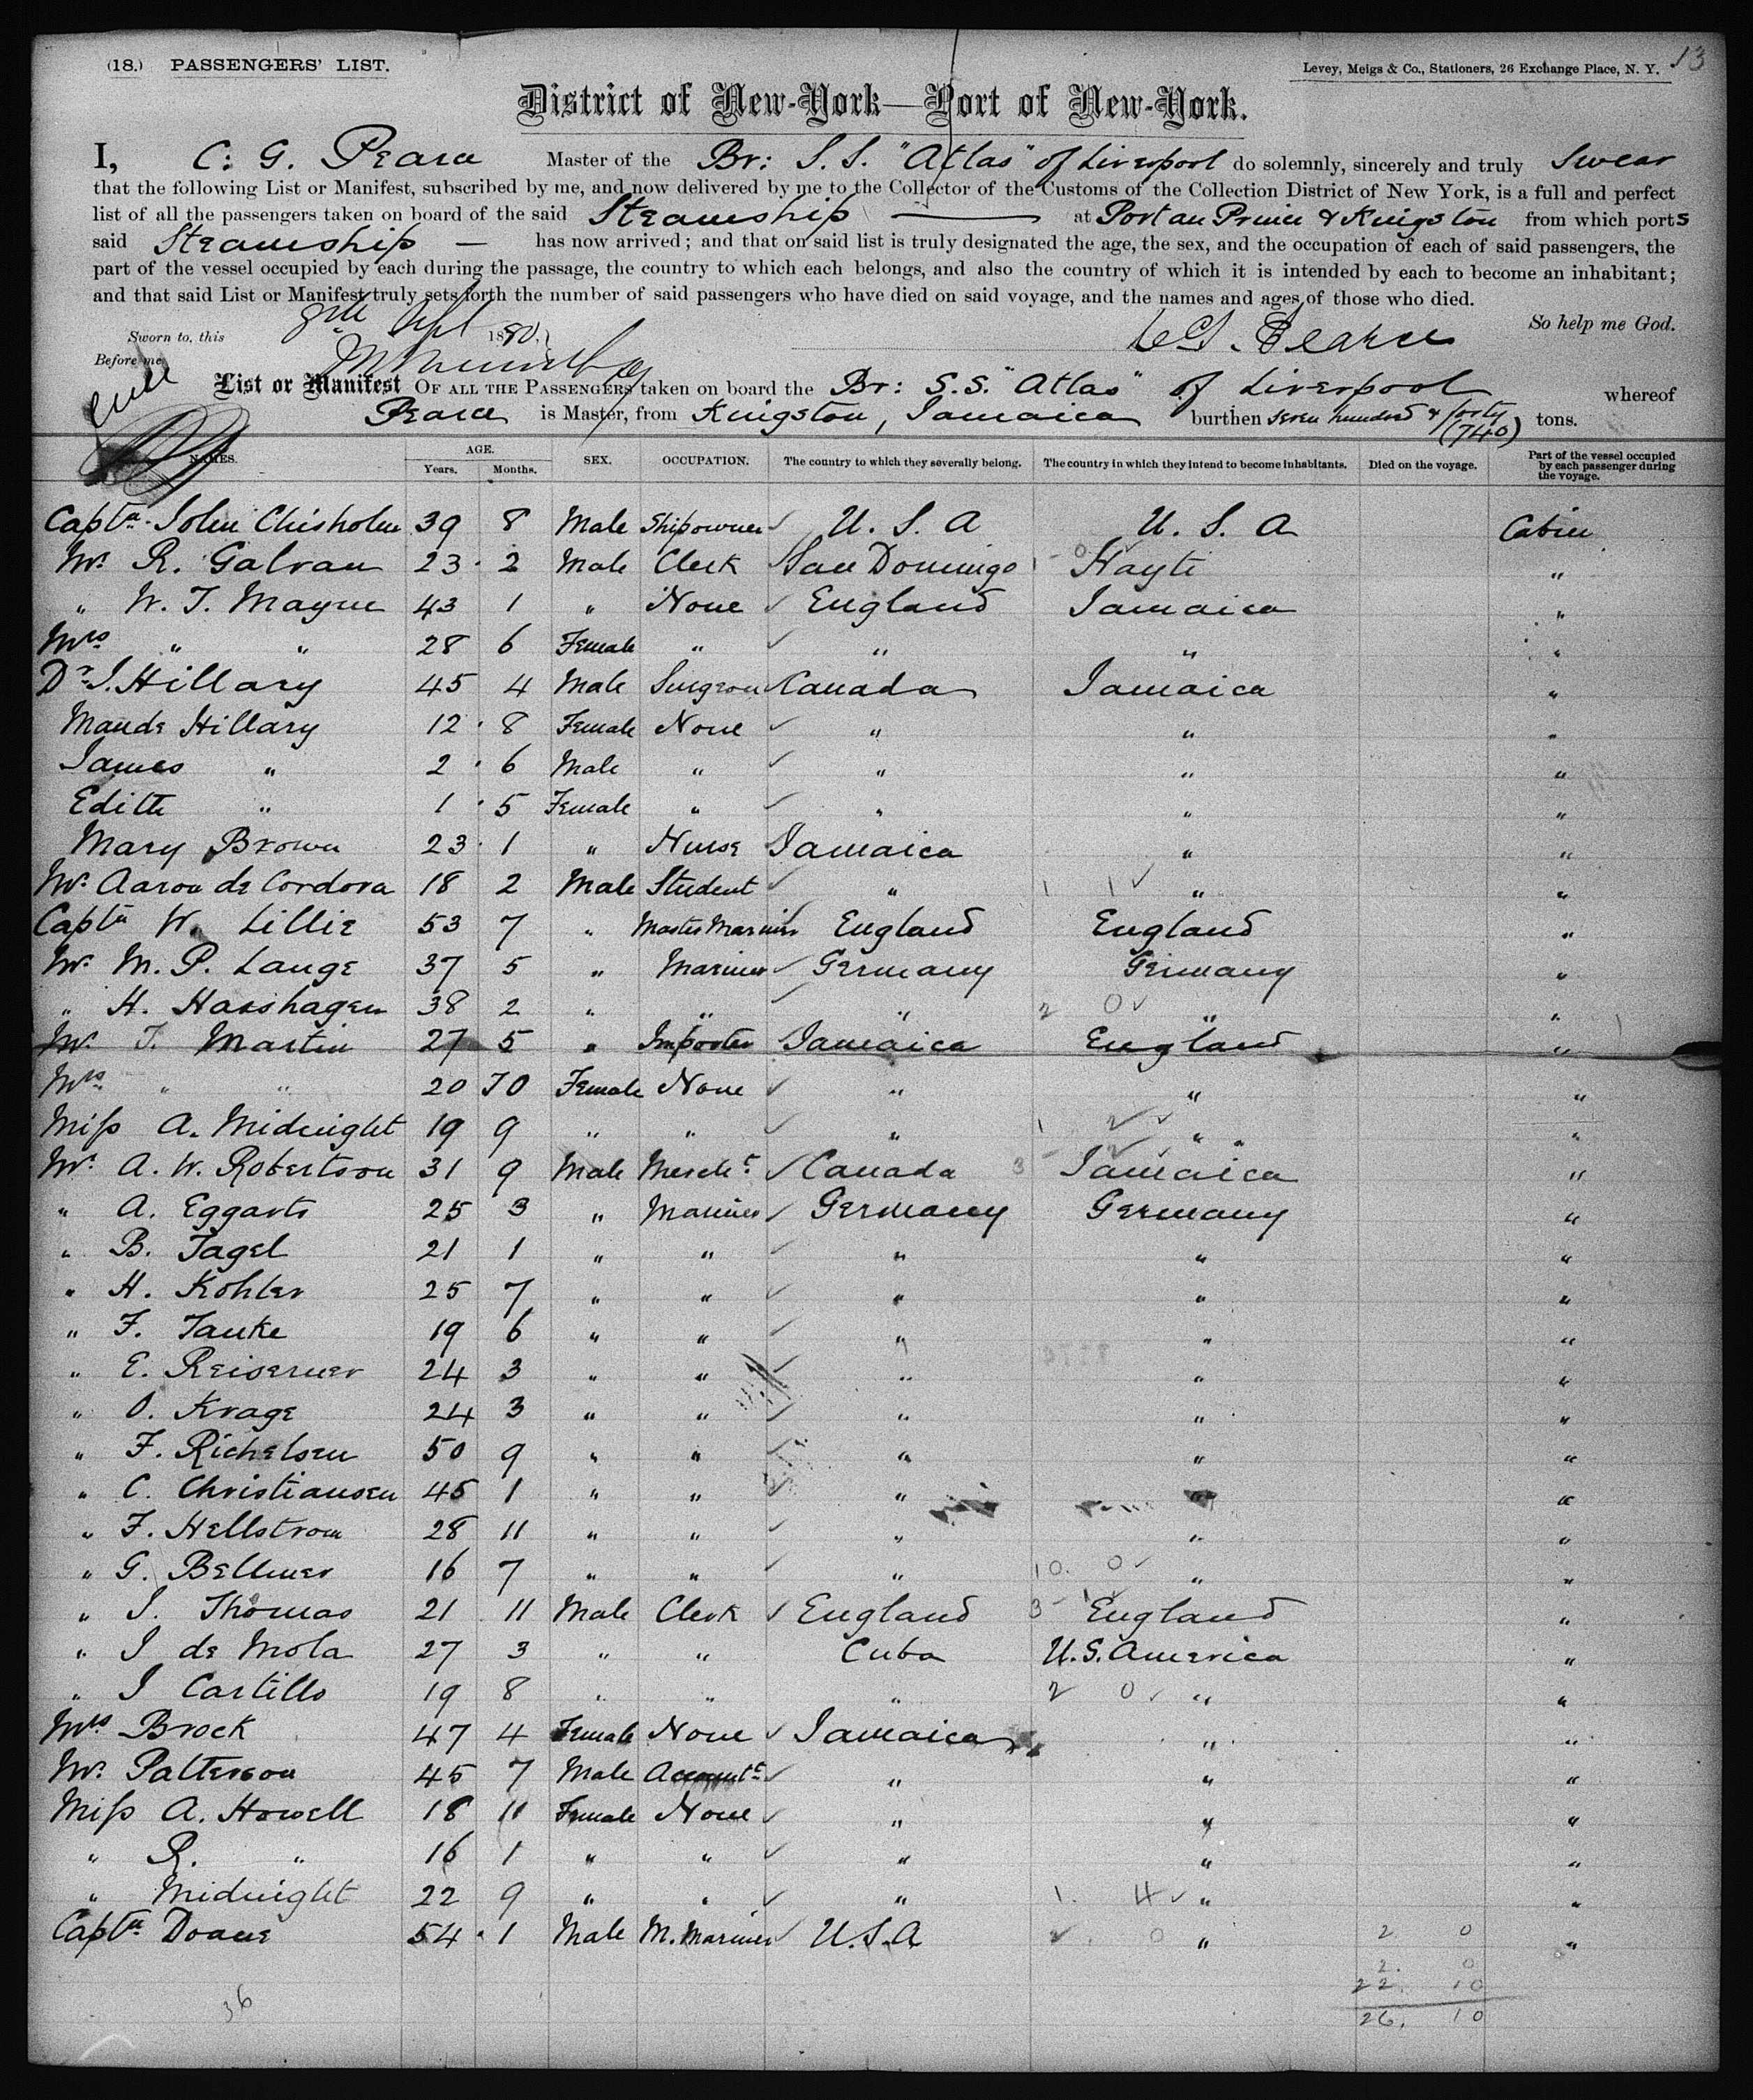 13
(18.) PASSENGERS' LIST.
Levey, Meigs & Co., Stationers, 26 Exchange Place, N. Y.
District of New-York—Port of New-York.
I, C. G. Pearce Master of the Br: S. S. "Atlas" of Liverpool do solemnly, sincerely and truly Swear
that the following List or Manifest, subscribed by me, and now delivered by me to the Collector of the Customs of the Collection District of New York, is a full and perfect
list of all the passengers taken on board of the said Steamship — at Port au Prince & Kingston from which ports
said Steamship — has now arrived; and that on said list is truly designated the age, the sex, and the occupation of each of said passengers, the
part of the vessel occupied by each during the passage, the country to which each belongs, and also the country of which it is intended by each to become an inhabitant;
and that said List or Manifest truly sets forth the number of said passengers who have died on said voyage, and the names and ages of those who died.
So help me God.
Sworn to, this 8th Sept 1880,
C G. Pearce
Before me
List or Manifest OF ALL THE PASSENGERS taken on board the Br: S.S. "Atlas" of Liverpool whereof
Pearce is Master, from Kingston, Jamaica burthen seven hundred & forty (740) tons.
NAMES. AGE. Years. Months. SEX. OCCUPATION. The country to which they severally belong. The country in which they intend to become inhabitants. Died on the voyage. Part of the vessel occupied by each passenger during the voyage.
Captn. John Chisholm 39 8 Male Shipowner U. S. A U. S. A Cabin
Mr. R. Galvan 23 2 Male Clerk San Domingo Hayti "
" W. T. Mayne 43 1 " None England Jamaica "
Mrs " " 28 6 Female " " " "
Dr. J. Hillary 45 4 Male Surgeon Canada Jamaica "
Maude Hillary 12 8 Female None " " "
James " 2 6 Male " " " "
Edith " 1 5 Female " " " "
Mary Brown 23 1 " Nurse Jamaica " "
Mr. Aaron de Cordova 18 2 Male Student " 1 1 " "
Captn W. Lillie 53 7 " Master Mariner England England "
Mr. M. P. Lange 37 5 " Mariner Germany Germany "
" H. Hasshagen 38 2 " " " 2 0 " "
Mr. J. Martin 27 5 " Importer Jamaica England "
Mrs. " " 20 10 Female None " " "
Miss A. Midnight 19 9 " " " 1 2 " "
Mr. A. W. Robertson 31 9 Male Mercht Canada 3 Jamaica "
" A. Eggarts 25 3 " Mariner Germany Germany "
" B. Tagel 21 1 " " " " "
" H. Kohler 25 7 " " " " "
" F. Tanke 19 6 " " " " "
" E. Reiserner 24 3 " " " " "
" O. Krage 24 3 " " " " "
" F. Richelsen 50 9 " " " " "
" C. Christiansen 45 1 " " " " "
" F. Hellstrom 28 11 " " " " "
" G. Bellmer 16 7 " " " 10. 0 " "
" J. Thomas 21 11 Male Clerk England 3 1 England "
" J de Mola 27 3 " " Cuba U.S. America "
" J Castillo 19 8 " " " 2 0 " "
Mrs Brock 47 4 Female None Jamaica " "
Mr. Patterson 45 7 Male Accountt " " "
Miss A. Howell 18 11 Female None " " "
" R. " 16 1 " " " " "
" Midnight 22 9 " " " 1. 4 " "
Captn. Doane 54 1 Male M. Mariner U.S.A 2. 0 " 2 0 "
2. 0
22. 10
36
26. 10